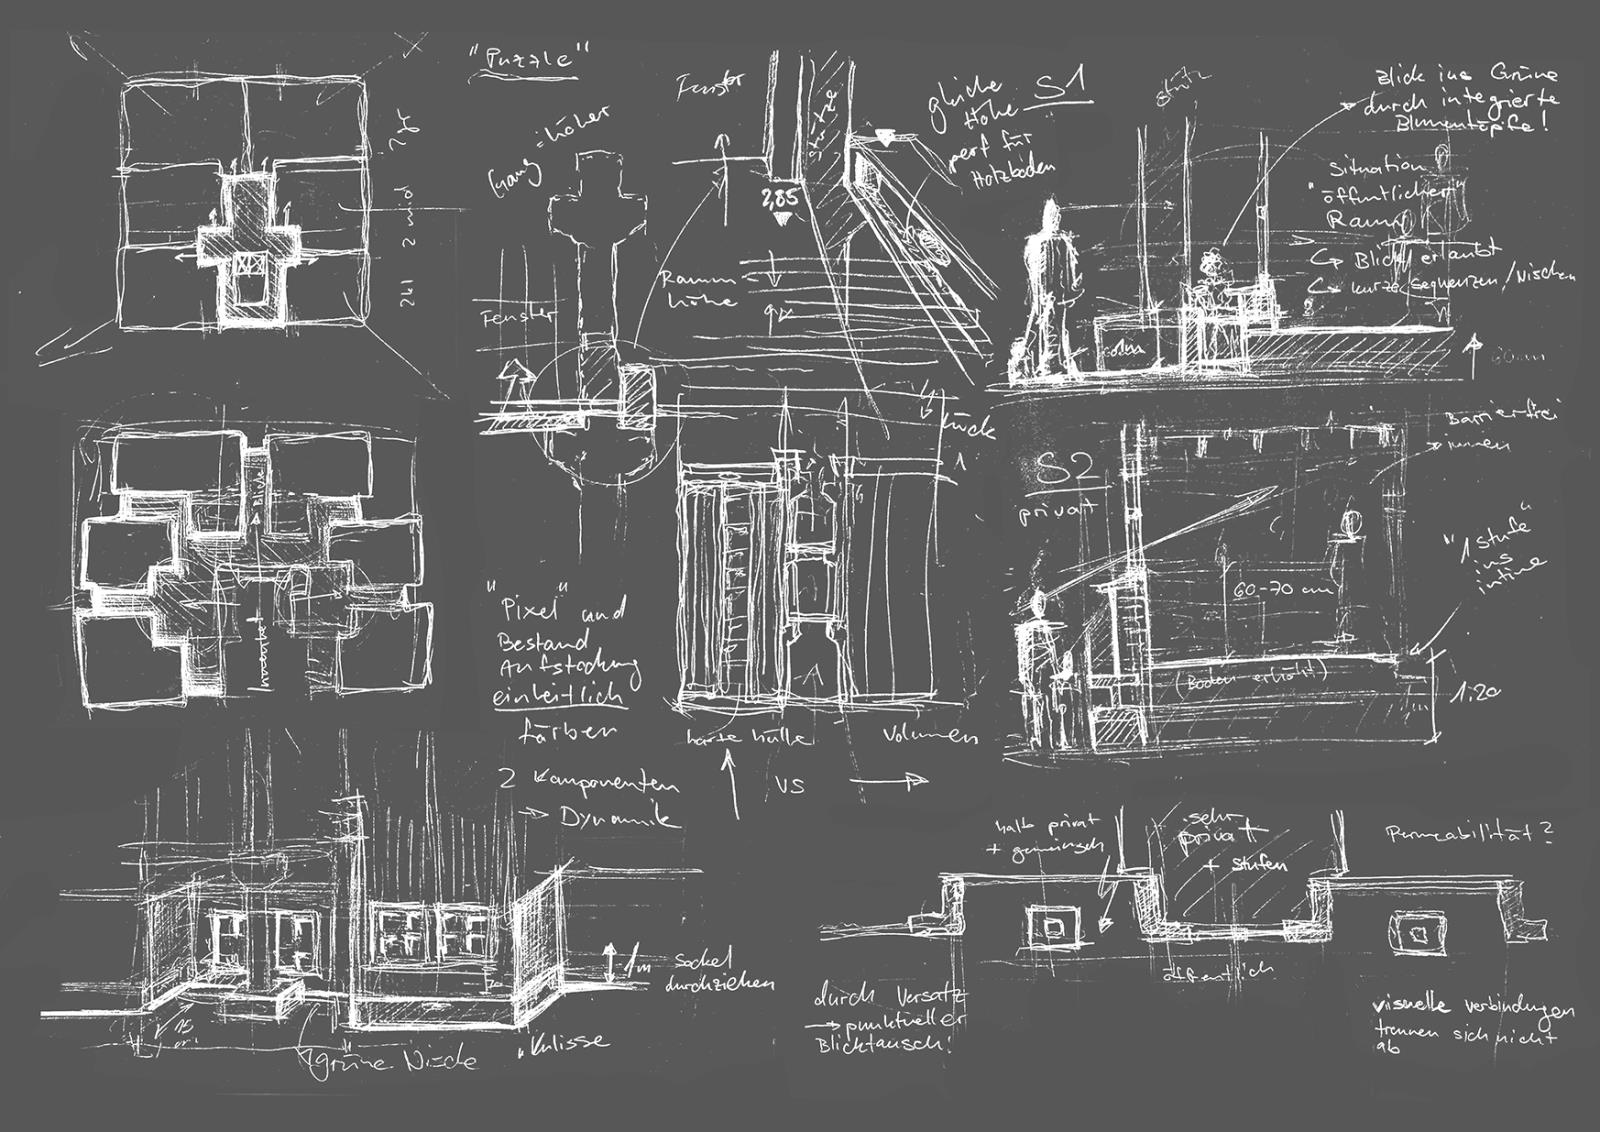 "Puzzle"
Gang = höher
Fenster
2,85
Stütze
gleiche
Höhe
perf für
Holzböden
S1
Blick ins Grüne
durch integrierte
Blumentöpfe!
Situation
"öffentlicher"
Raum
Blick erlaubt
kurze Sequenzen/Nischen
Raum
höhe
Fenster
2kl 2 und
Blick
S2
privat
Barrierefrei
innen
"1 Stufe"
ins
intime
60-70 cm
(Boden erhöht!)
1:20
"Pixel" und
Bestand
Aufstockung
einheitlich
färben
harte hülle
vs
Volumen
2 Komponenten
Dynamik
1m sockel
durchziehen
"Kulisse
grüne Nische
15
halb privat
+ gemeinsch
sehr
privat
+ stufen
Permeabilität?
öffentlich
durch Versatz
punktueller
Blicktausch!
visuelle verbindungen
trennen sich nicht
ab